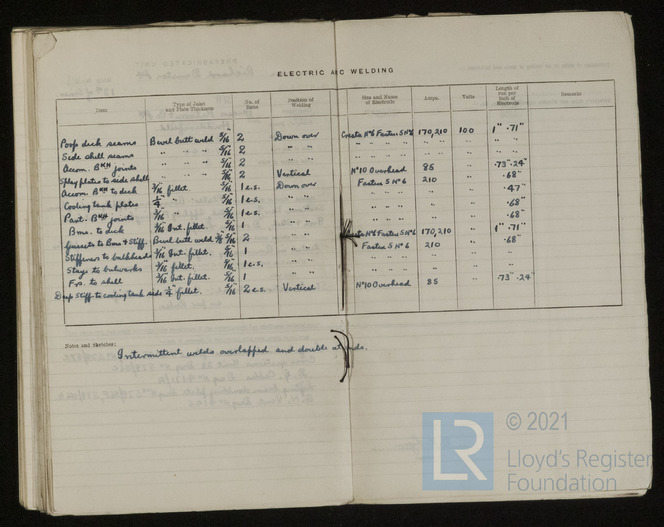 ELECTRIC ARC WELDING
Item Type of Joint and Plate Thickness No. of Runs Position of Welding Size and Name of Electrode Amps. Volts Length of run per inch of Electrode Remarks
Poop deck seams Bevel butt weld 5/16" 2 Down over Cresta No 6 Fastex 5 No 6 170,210 100 1" .71"
Side shell seams " " " 5/16 2 " " " " " " " " " "
Accom. BKH joints " " " 5/16 2 " " " " " " " "
plates to side shell " " " 5/16 2 Vertical No 10 Overhead 85 " .73" .24"
Accom. BKH to deck 3/16 fillet 5/16 1 e.s. Down over Fastex 5 No 6 210 " .68"
Cooling tank plates 1/4" " 5/16 1 e.s. " " " " " " .47"
Part. BKH joints 3/16 " 1 e.s. " " " " " " .68"
Bms. to deck 3/16 Int. fillet 5/16 1 " " " " " " .68"
Gussets to Bms & Stiff. Bevel butt weld 5/16 2 " " Cresta No 6 Fastex 5 No 6 170,210 " 1" .71"
Stiffeners to bulkheads 3/16 Int. fillet 5/16 1 " " Fastex 5 No 6 210 " .68"
Stays to bulwarks 3/16 fillet 5/16 1 e.s. " " " " " " "
Frs. to shell 3/16 Int. fillet 5/16 1 " " " " " " "
Deep Stiff. to cooling tank side 1/4" fillet. 5/16 2 e.s. Vertical No 10 Overhead 85 " .73" .24"
Notes and Sketches:
Intermittent welds overlapped and double at ends.
© 2021
LR
Lloyd's Register
Foundation